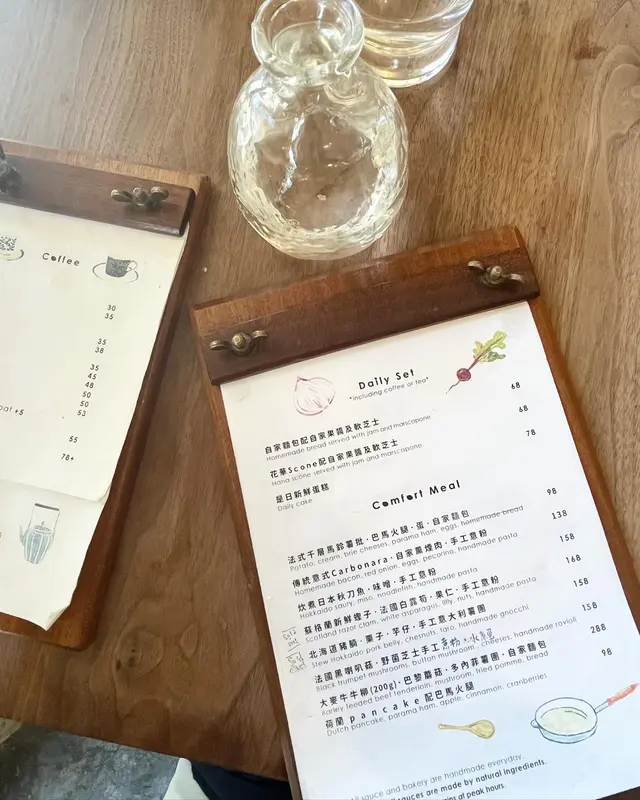 Coffee
30
35
35
38
35
45
48
50
50
+5 53
55
78+
Daily Set
"including coffee or tea"
自家麵包配自家果醬及軟芝士 68
Homemade bread served with jam and marscapone
花華Scone配自家果醬及軟芝士 68
Hana scone served with jam and marscapone
是日新鮮蛋糕 78
Daily cake
Comfort Meal
法式千層馬鈴薯批・巴馬火腿・蛋・自家麵包 98
Potato, cream, brie cheeses, parama ham, eggs, homemade bread
傳統意式Carbonara・自家風煙肉・手工意粉 138
Homemade bacon, red onion, eggs, pecorina, handmade pasta
炊煮日本秋刀魚・味噌・手工意粉 158
Hokkaido saury, miso, noodlefish, handmade pasta
蘇格蘭新鮮蟶子・法國白露筍・果仁・手工意粉 168
Scotland razor clam, white asparagus, lilly, nuts, handmade pasta
Sold out 北海道豬腩・栗子・芋仔・手工意大利薯團 158
Stew Hokkaido pork belly, chesnuts, taro, handmade gnocchi
法國黑喇叭菇・野菌芝士手工意粉 158
Black trumpet mushrooms, button mushroom, cheeses, handmade ravioli
大麥牛牛柳(200g)・巴黎蘑菇・多內菲薯團・自家麵包 288
Barley feeded beef tenderloin, mushroom, fried pomme, bread
荷蘭 pancake 配巴馬火腿 98
Dutch pancake, parama ham, apple, cinnamon, cranberries
All sauce and bakery are handmade everyday.
sauces are made by natural ingredients.
at peak hours.